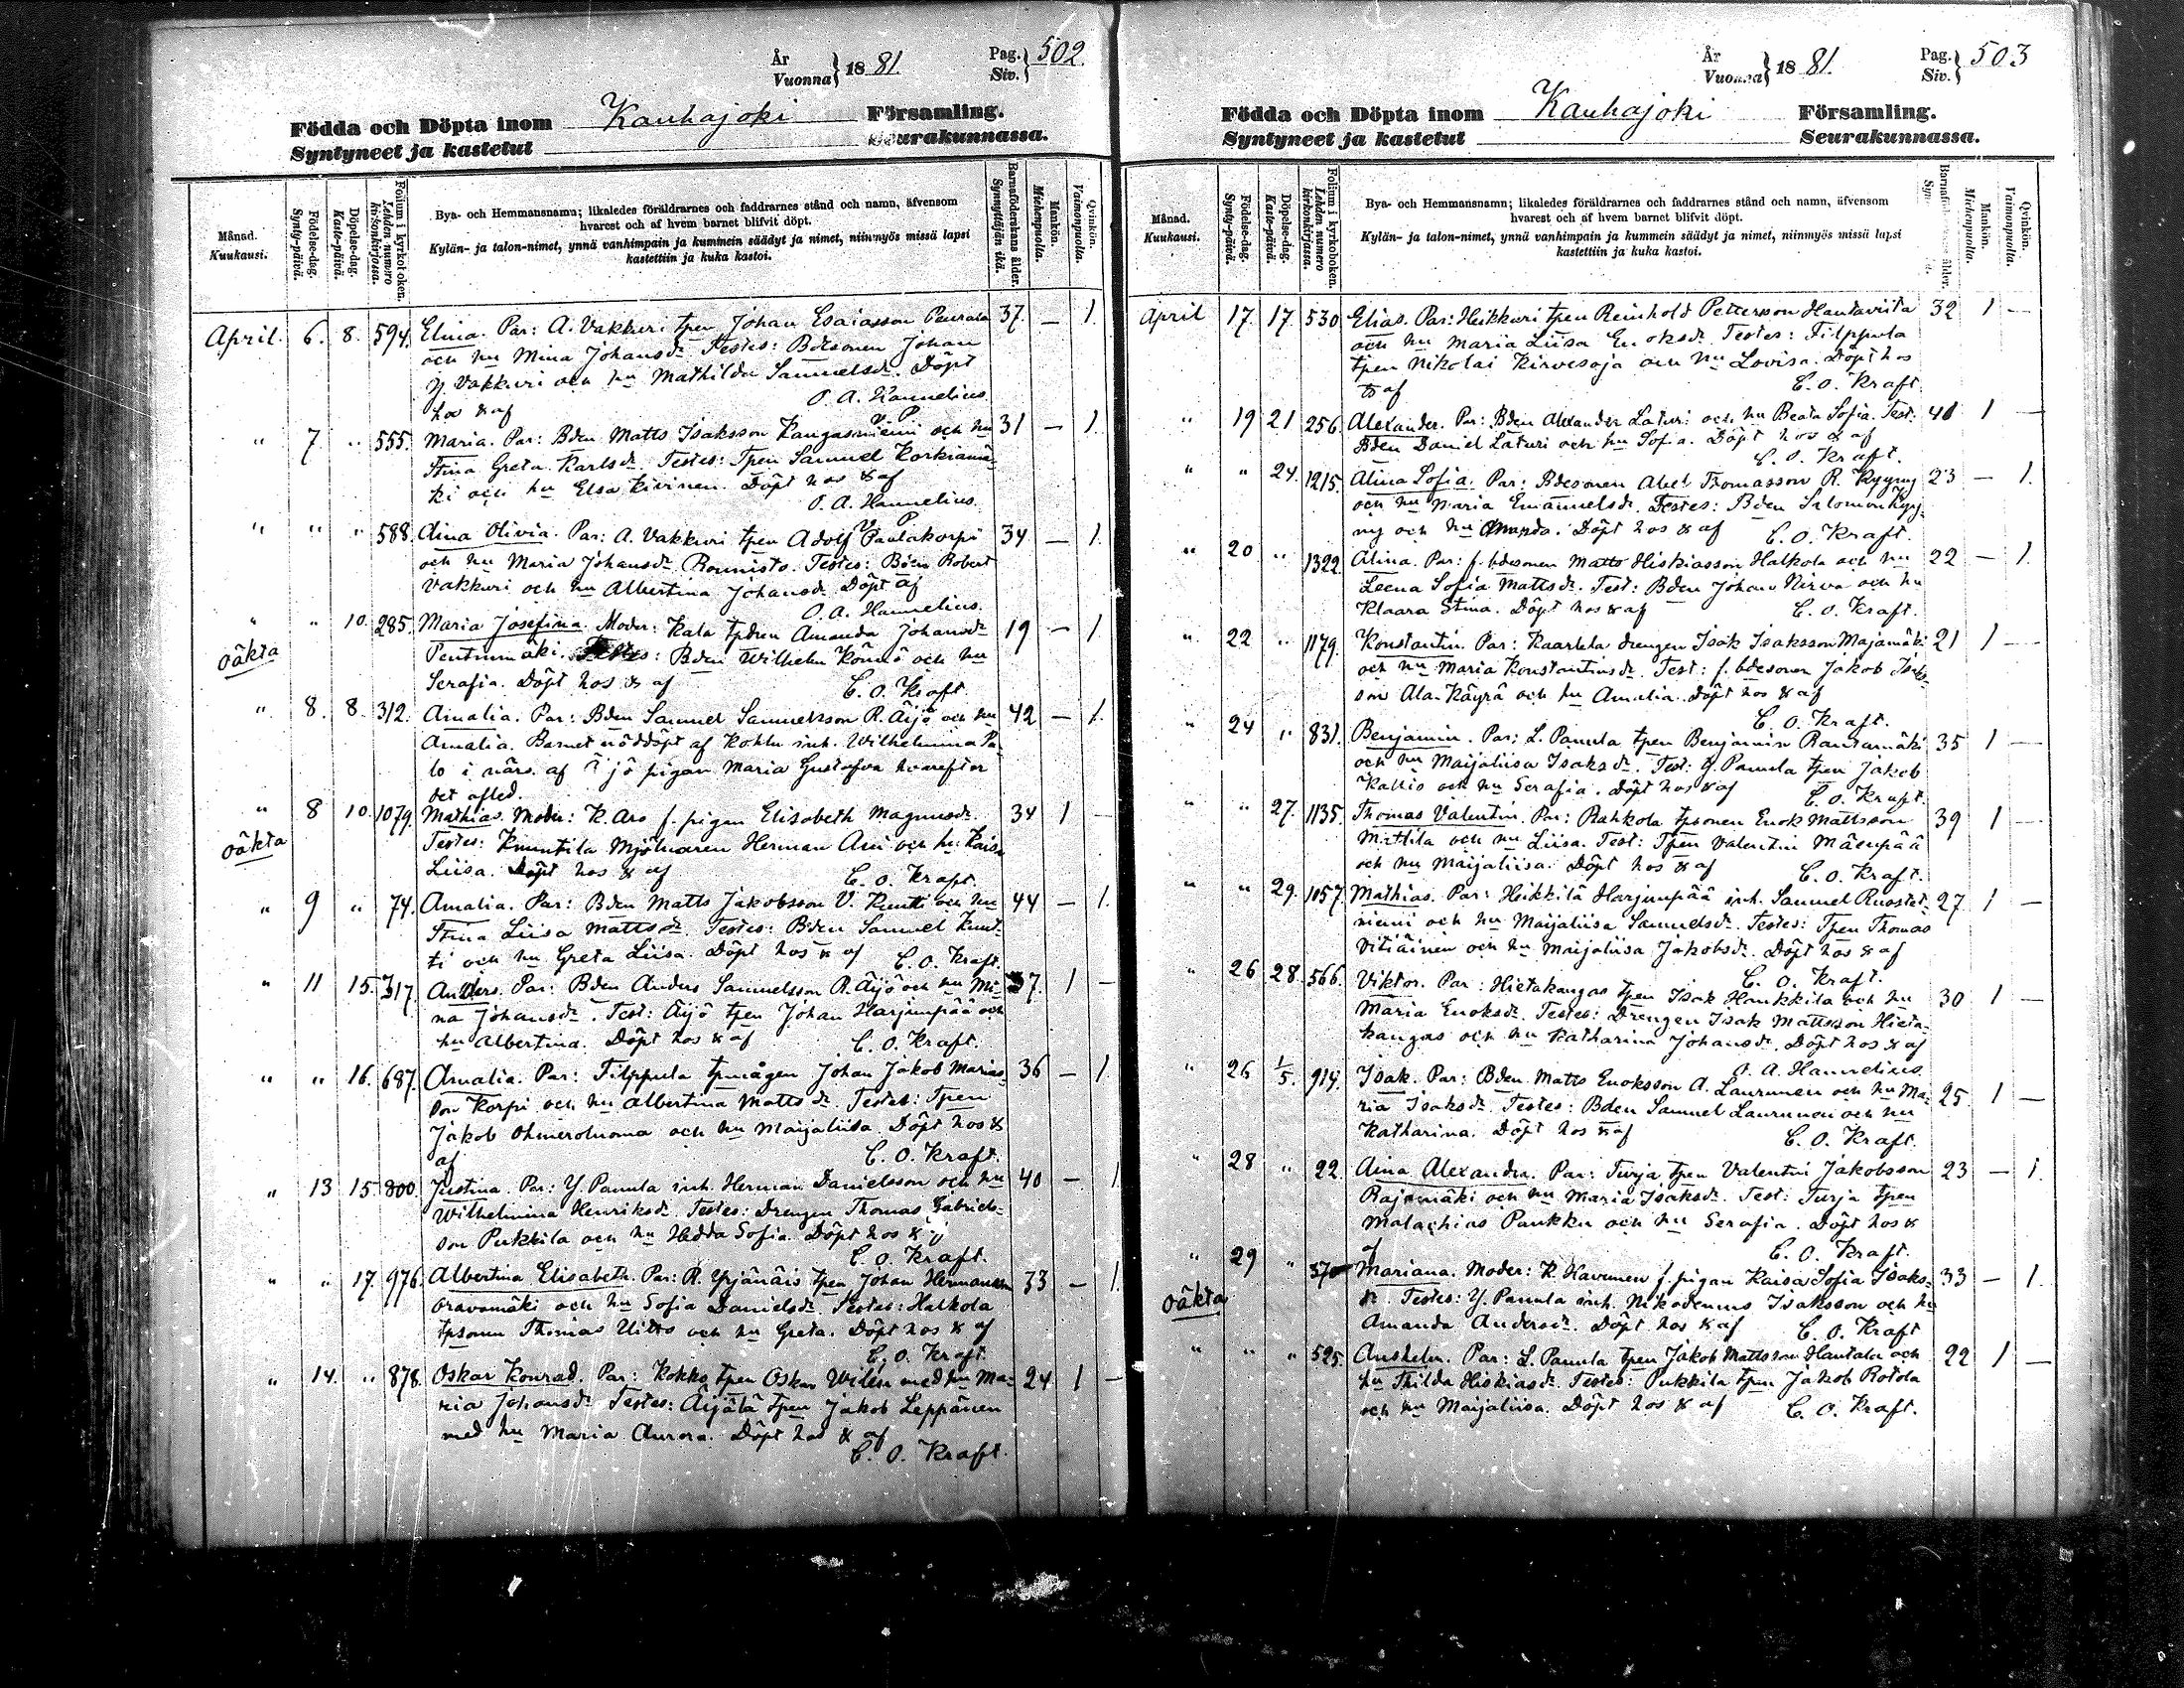 År
Vuonna} 1881.
Pag.
Siv.} 502.
Födda och Döpta inom Kauhajoki Församling.
Syntyneet ja kastetut Seurakunnassa.
Månad.
Kuukausi.
Födelse-dag.
Synty-päivä.
Döpelse-dag.
Kaste-päivä.
Folium i kyrkoboken.
Lehden numero kirkonkirjassa.
Bya- och Hemmansnamn; likaledes föräldrarnes och faddrarnes stånd och namn, äfvensom
hvarest och af hvem barnet blifvit döpt.
Kylän- ja talon-nimet, ynnä vanhimpain ja kummein säädyt ja nimet, niinmyös missä lapsi
kastettiin ja kuka kastoi.
Barnaföderskans ålder.
Synnyttäjän ikä.
Mankön.
Miehenpuolia.
Qvinkön.
Vaimonpuolia.
April. 6. 8. 594. Elina. Par: A. Vakkuri tpen Johan Esaiasson Penrala 37. — 1.
och hu Mina Johansdr. Testes: Bdesonen Johan
Y Vakkuri och hu Mathilda Samuelsdr. Döpt
hos & af O. A. Hannelius.
V. P.
" 7. " 555. Maria. Par: Bden Matts Isaksson Kangasniemi och hu 31 — 1.
Stina Greta Karlsdr. Testes: Tpen Samuel Korkiamä-
ki och hu Elsa Kivinen. Döpt hos & af
O. A. Hannelius.
V. P.
" " " 588. Aina Olivia. Par: A. Vakkuri tpen Adolf Pantakorpi 34 — 1.
och hu Maria Johansdr. Ronnisto. Testes: Bden Robert
Vakkuri och hu Albertina Johansdr. Döpt af
O. A. Hannelius.
" " 10. 285. Maria Josefina. Moder: Kala tpdren Amanda Johansdr 19 — 1
oäkta
Pentinmäki. Testes: Bden Wilhelm Könnö och hu
Serafia. Döpt hos & af C. O. Kraft.
" 8. 8. 312. Amalia. Par: Bden Samuel Samuelsson R. Äijö och hu 42 — 1.
Amalia. Barnet nöddöpt af Kohlu inh. Wilhelmina Pa-
lo i närv. af Äijö pigan Maria Gustafva hvarefter
det afled.
" 8 10. 1079. Mathias. Moder: K. Aro f. pigan Elisabeth Magnusdr. 34 1 —
oäkta
Testes: Knuutila Mjölnaren Herman Ani och hu Kaisa
Liisa. Döpt hos & af C. O. Kraft.
" 9 " 74. Amalia. Par: Bden Matts Jakobsson V. Knuti och hu 44 — 1.
Stina Liisa Mattsdr. Testes: Bden Samuel Knut-
ti och hu Greta Liisa. Döpt hos & af C. O. Kraft.
" 11 15. 317. Anders. Par: Bden Anders Samuelsson R. Äijö och hu Mi- 37. 1 —
na Johansdr. Test: Äijö tpen Johan Harjunpää och
hu Albertina. Döpt hos & af C. O. Kraft.
" " 16. 687. Amalia. Par: Filppula tpmågen Johan Jakob Marias- 36 — 1.
son Korpi och hu Albertina Mattsdr. Testes: Tpen
Jakob Ohmeroluoma och hu Maijaliisa. Döpt hos &
af C. O. Kraft.
" 13 15. 800. Justina. Par: Y Panula inh. Herman Danielsson och hu 40 — 1
Wilhelmina Henriksdr. Testes: Drengen Thomas Gabriels-
son Pukkila och hu Hedda Sofia. Döpt hos & "
C. O. Kraft.
" " 17. 976. Albertina Elisabeth. Par: R. Yrjänäis tpen Johan Hermansson 33 — 1.
Oravamäki och hu Sofia Danielsdr. Testes: Halkola
tpsonen Thomas Uitto och hu Greta. Döpt hos & af
C. O. Kraft.
" 14. " 878. Oskar Konrad. Par: Kokko tpen Oskar Wilen med hu Ma- 24 1 —
ria Johansdr. Testes: Äijälä tpen Jakob Leppänen
med hu Maria Aurora. Döpt hos & af
C. O. Kraft.
År
Vuonna} 1881.
Pag.
Siv.} 503
Födda och Döpta inom Kauhajoki Församling.
Syntyneet ja kastetut Seurakunnassa.
Månad.
Kuukausi.
Födelse-dag.
Synty-päivä.
Döpelse-dag.
Kaste-päivä.
Folium i kyrkoboken.
Lehden numero kirkonkirjassa.
Bya- och Hemmansnamn; likaledes föräldrarnes och faddrarnes stånd och namn, äfvensom
hvarest och af hvem barnet blifvit döpt.
Kylän- ja talon-nimet, ynnä vanhimpain ja kummein säädyt ja nimet, niinmyös missä lapsi
kastettiin ja kuka kastoi.
Mankön.
Miehenpuolia.
Qvinkön.
Vaimonpuolia.
April 17. 17. 530 Elias. Par: Heikkuri tpen Reinhold Pettersson Hautaviita 32 1 —
och hu Maria Liisa Enoksdr. Testes: Filppula
tpen Nikolai Kirvesoja och hu Lovisa. Döpt hos
& af C. O. Kraft.
" 19 21 256. Alexander. Par: Bden Alexander Laturi och hu Beata Sofia. Test. 41 1 —
Bden Daniel Laturi och hu Sofia. Döpt hos & af
C. O. Kraft.
" " 24. 1215. Alina Sofia. Par: Bdesonen Abel Thomasson R. Kyyny 23 — 1.
och hu Maria Emanuelsdr. Testes: Bden Salomon Kyy-
ny och hu Amanda. Döpt hos & af C. O. Kraft.
" 20 " 1322. Alina. Par: f. bdesonen Matts Hiskiasson Halkola och hu 22 — 1.
Leena Sofia Mattsdr. Test: Bden Johan Nirva och hu
Klaara Stina. Döpt hos & af C. O. Kraft.
" 22 " 1179. Konstantin. Par: Kaartela drengen Isak Isaksson Majamäki 21 1 —
och hu Maria Konstantinsdr. Test: f. bdesonen Jakob Isaks-
son Ala-Käyrä och hu Amalia. Döpt hos & af
C. O. Kraft.
" 24 " 831. Benjamin. Par: L. Panula tpen Benjamin Rantamäki 35 1 —
och hu Maijaliisa Isaksdr. Test: Y. Panula tpen Jakob
Kallio och hu Serafia. Döpt hos & af C. O. Kraft.
" " 27. 1135. Thomas Valentin. Par: Rahkola tpsonen Enok Mattsson 39 1 —
Mattila och hu Liisa. Test: Tpen Valentin Mäenpää
och hu Maijaliisa. Döpt hos & af C. O. Kraft.
" " 29. 1057. Mathias. Par: Heikkilä Harjunpää inh. Samuel Ruostet- 27. 1 —
niemi och hu Maijaliisa Samuelsdr. Testes: Tpen Thomas
Vitiäinen och hu Maijaliisa Jakobsdr. Döpt hos & af
C. O. Kraft.
" 26 28. 566. Viktor. Par: Hietakangas tpen Isak Hankkila och hu 30 1 —
Maria Enoksdr. Testes: Drengen Isak Mattsson Hieta-
kangas och hu Katharina Johansdr. Döpt hos & af
O. A. Hannelius.
" 26 1/5. 914. Isak. Par: Bden Matts Enoksson A. Laurunen och hu Ma- 25 1 —
ria Isaksdr. Testes: Bden Samuel Laurunen och hu
Katharina. Döpt hos & af C. O. Kraft.
" 28 " 22. Aina Alexandra. Par: Turja tpen Valentin Jakobsson 23 — 1.
Rajamäki och hu Maria Isaksdr. Test: Turja tpen
Malachias Paukku och hu Serafia. Döpt hos &
af C. O. Kraft.
" 29 " 370 Mariana. Moder: K. Havunen f. pigan Kaisa Sofia Isaks- 33 — 1.
oäkta
dr. Testes: Y. Panula inh. Nikodemus Isaksson och hu
Amanda Andersdr. Döpt hos & af C. O. Kraft
" " " 525. Anshelm. Par: L. Panula tpen Jakob Mattsson Hautala och 22 1 —
hu Thilda Hiskiasdr. Testes: Pukkila tpen Jakob Rotola
och hu Maijaliisa. Döpt hos & af C. O. Kraft.